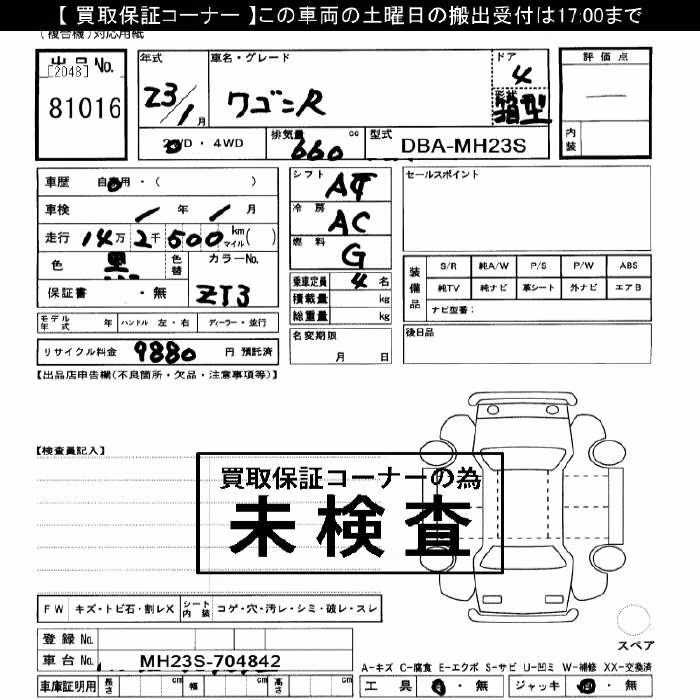 【 買取保証コーナー 】この車両の土曜日の搬出受付は17:00まで
(複合機)対応用紙
出品No.
[2048]
81016
年式
23/1月
車名・グレード
ワゴンR
ドア
4
形状
箱型
評価点
内装
2WD・4WD
排気量
660 cc
型式
DBA-MH23S
車歴 自家用・( )
車検 / 年 / 月
走行 14万 2千 500 km マイル( )
色 黒 色替 カラーNo.
保証書 ・無 ZJ3
シフト AT
冷房 AC
燃料 G
乗車定員 4 名
積載量 kg
総重量 kg
名変期限
月 日
セールスポイント
装備品
S/R 純A/W P/S P/W ABS
純TV 純ナビ 革シート 外ナビ エアB
ナビ型番:
後日品
モデル年式 年 ハンドル 左・右 ディーラー・並行
リサイクル料金 9880 円 預託済
【出品店申告欄(不良箇所・欠品・注意事項等)】
【検査員記入】
買取保証コーナーの為
未検査
FW キズ・トビ石・割レX シート内装 コゲ・穴・汚レ・シミ・破レ・スレ
登録No.
車台No. MH23S-704842
車庫証明用 長さ cm 幅 cm 高さ cm
スペア
A-キズ C-腐食 E-エクボ S-サビ U-凹ミ W-補修 XX-交換済
工具 ・無 ジャッキ ・無